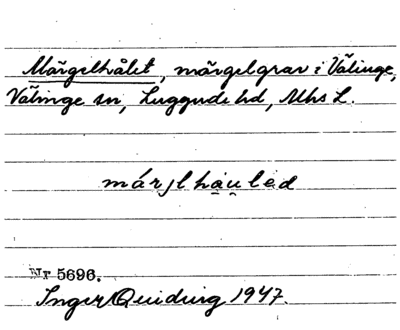 Märgelhålet, märgelgrav i Välinge,
Välinge sn, Luggude hd, Mhs L.
márjlhau̯led
Nr 5696.
Inger Quiding 1947.